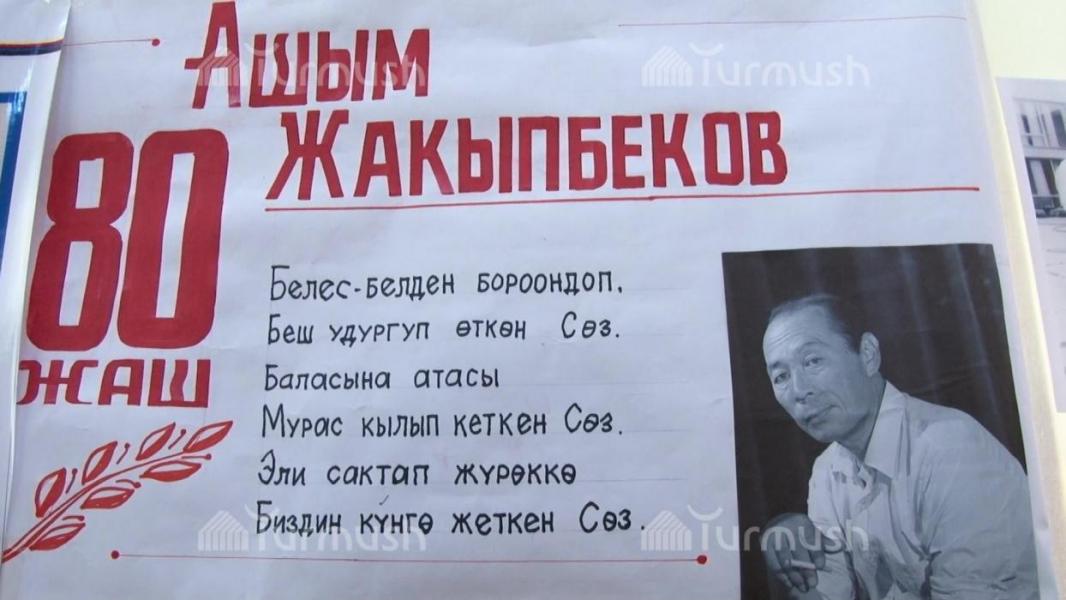 Ашым
Жакыпбеков
80
жаш
Белес-белден бороондоп,
Беш удургуп өткөн Сөз.
Баласына атасы
Мурас кылып кеткен Сөз.
Эли сактап жүрөккө
Биздин күнгө жеткен Сөз.
Turmush
Turmush
Turmush
Turmush